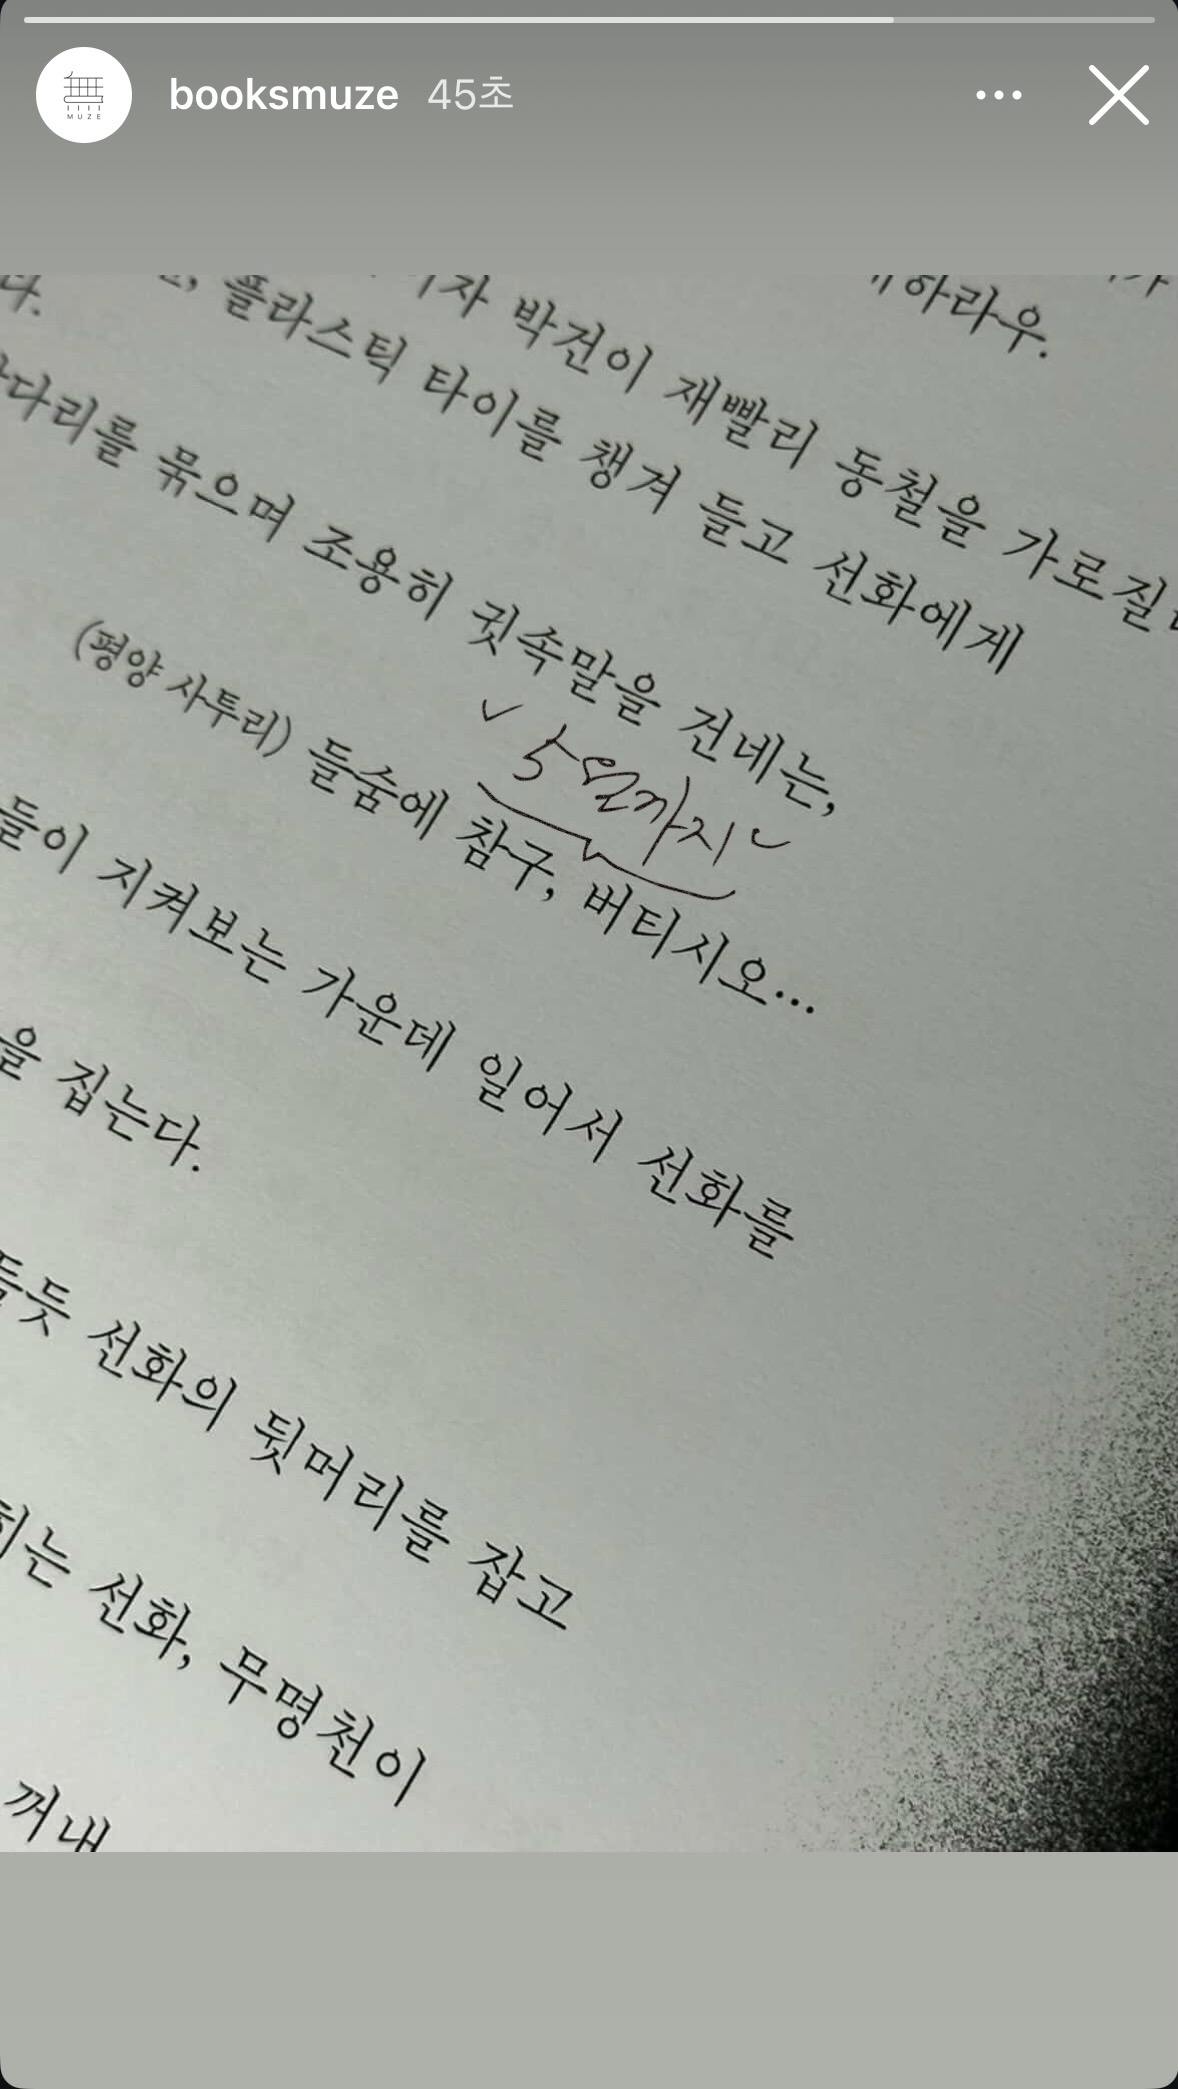 booksmuze 45초
MUZE
하라우.
박건이 재빨리 동철을
다. 플라스틱 타이를 챙겨 들고 선화에게
다리를 묶으며 조용히 귓속말을 건네는,
5월까지
(평양 사투리) 들숨에 참구, 버티시오...
들이 지켜보는 가운데 일어서 선화를
을 집는다.
듯 선화의 뒷머리를 잡고
는 선화, 무명천이
꺼내